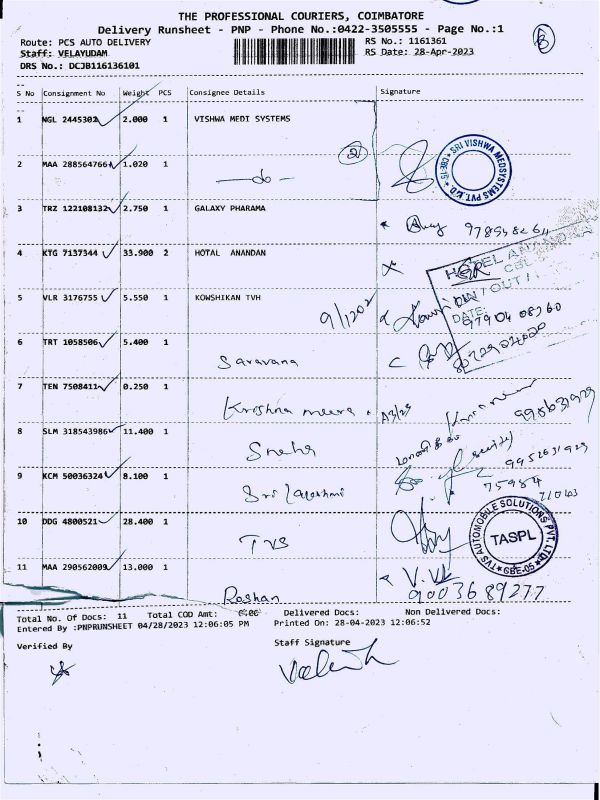 THE PROFESSIONAL COURIERS, COIMBATORE
Delivery Runsheet - PNP - Phone No.:0422-3505555 - Page No.:1
Route: PCS AUTO DELIVERY RS No.: 1161361
Staff: VELAYUDAM RS Date: 28-Apr-2023
DRS No.: DCJB116136101
S No Consignment No Weight PCS Consignee Details Signature
1 NGL 2445302 2.000 1 VISHWA MEDI SYSTEMS
2 MAA 288564766 1.020 1 -do-
SRI VISHWA MEDSYSTEMS PVT. LTD. CBE-15
3 TRZ 122108132 2.750 1 GALAXY PHARAMA
4 KTG 7137344 33.900 2 HOTAL ANANDAN
IN / OUT /
DATE:
5 VLR 3176755 5.550 1 KOWSHIKAN TVH
9/1202
97904 08960
6 TRT 1058506 5.400 1 Saravana
7 TEN 7508411 0.250 1 Krishna meera
8 SLM 318543986 11.400 1 Sneha
9 KCM 50036324 8.100 1 Sri Lakshmi
10 DDG 4800521 28.400 1 TVS
TVS AUTOMOBILE SOLUTIONS PVT. LTD. CBE-05
TASPL
11 MAA 290562009 13.000 1 Roshan
V.VK
9003689277
Total No. Of Docs: 11 Total COD Amt: 0.00 Delivered Docs: Non Delivered Docs:
Entered By :PNPRUNSHEET 04/28/2023 12:06:05 PM Printed On: 28-04-2023 12:06:52
Verified By Staff Signature